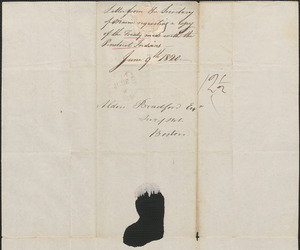 Letter from the Secretary
of Maine requesting a Copy
of the Treaty made with the
Penobscot Indians
June 9th 1820
12½
Alden Bradford Esqr
Secy of State
Boston